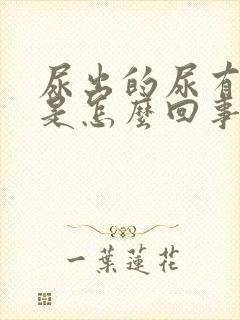 尿出的尿有
是怎麼回事
一葉蓮花